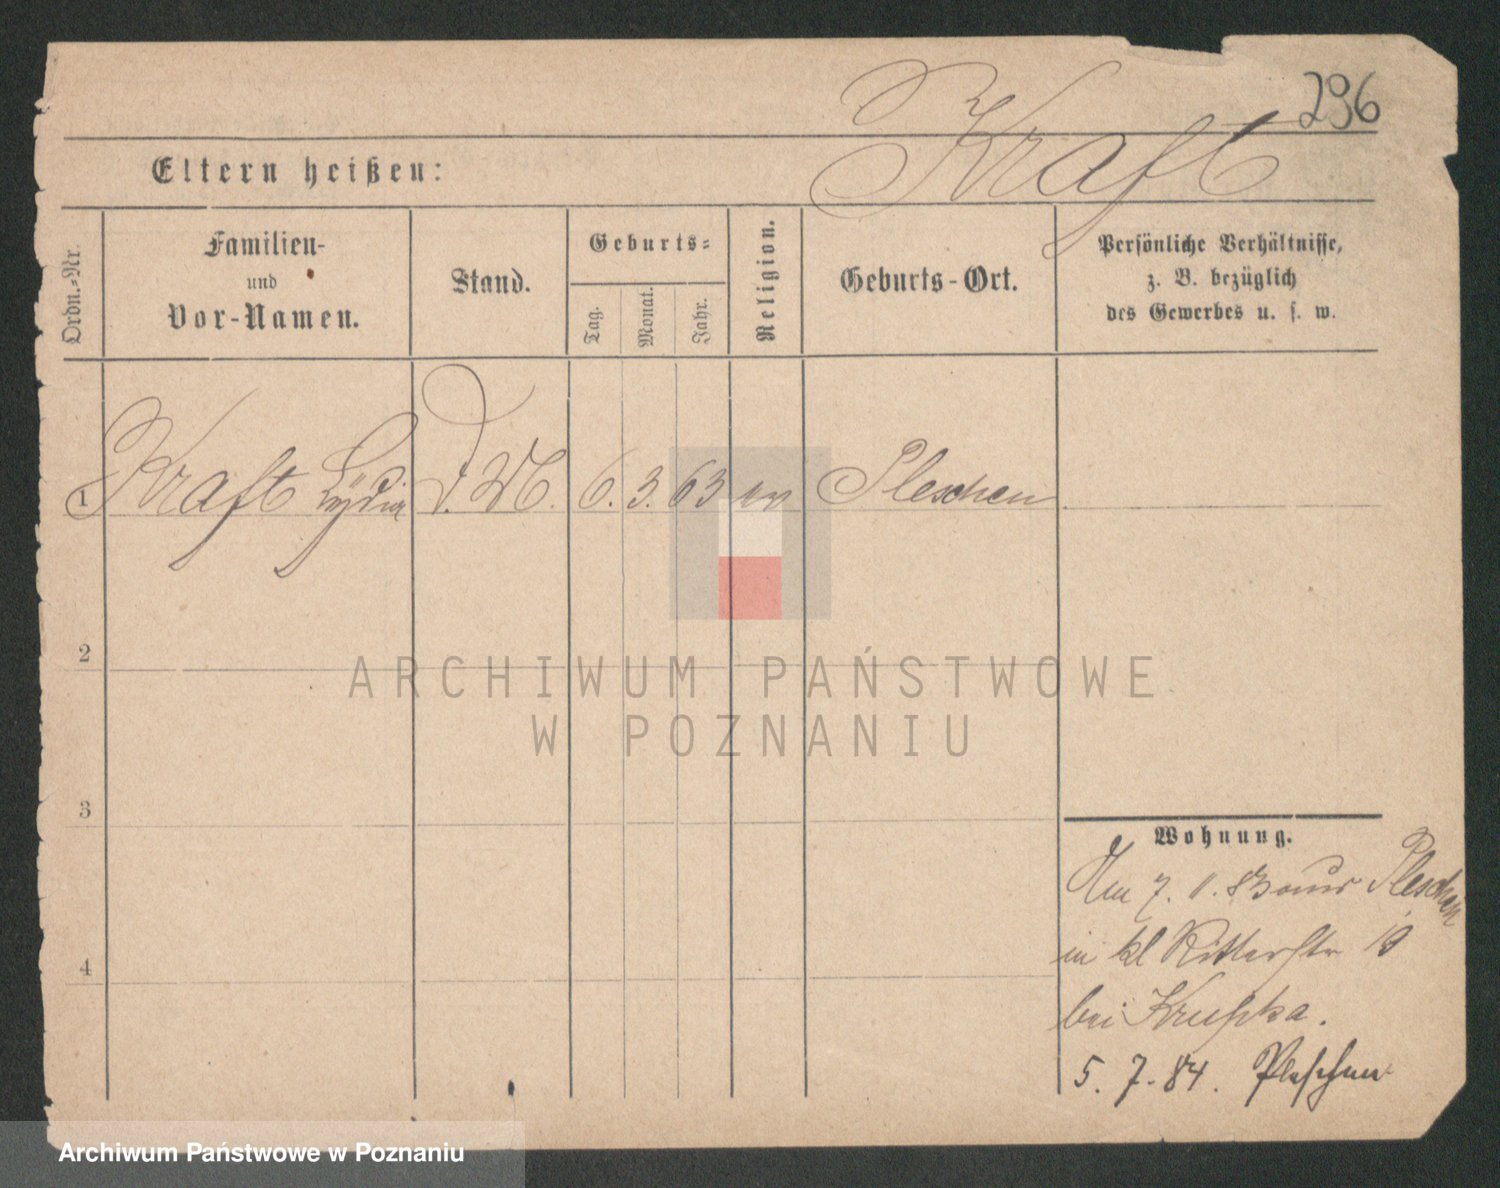 296
Kraft
Eltern heißen:
Ordn.-Nr.
Familien-
und
Vor-Namen.
Stand.
Geburts-
Tag.
Monat.
Jahr.
Religion.
Geburts-Ort.
Persönliche Verhältnisse,
z. B. bezüglich
des Gewerbes u. s. w.
1 Kraft Lydia d. W. 6. 3. 63 ev Pleschen
2
3
4
ARCHIWUM PAŃSTWOWE
W POZNANIU
Wohnung.
Am 7. 11. 83 aus Pleschen
in kl Ritterstr
bei Krupka.
5. 7. 84. Pleschen
Archiwum Państwowe w Poznaniu